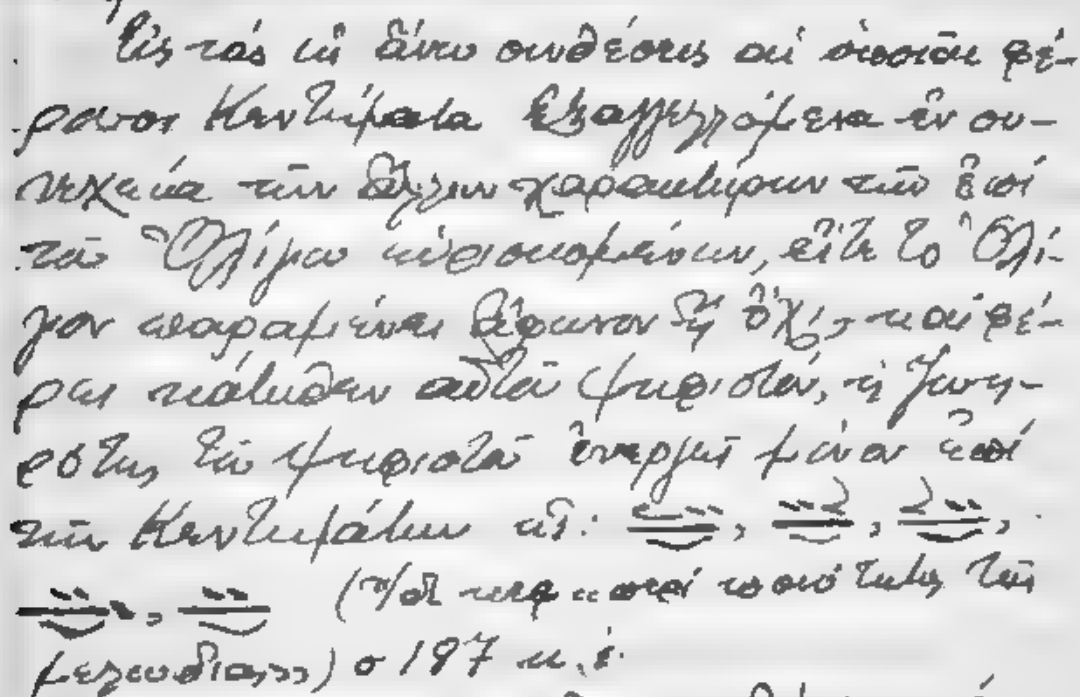 Εἰς τὰς ὡς ἄνω συνθέσεις αἱ ὁποῖαι φέ-
ρουσι Κεντήματα ἐξαγγελλόμενα ἐν συ-
νεχείᾳ τῶν ἄλλων χαρακτήρων τῶν ἐπὶ
τοῦ Ὀλίγου εὑρισκομένων, εἴτε τὸ Ὀλί-
γον παραμένει ἄφωνον ἢ ὄχι, καὶ φέ-
ρει κάτωθεν αὐτοῦ ψηφιστόν, ἡ ζωη-
ρότης τοῦ ψηφιστοῦ ἐνεργεῖ μόνον ἐπὶ
τῶν Κεντημάτων
(ἴδε κεφ « περὶ ποιότητος τῆς
μελῳδίας») σ 197 κ.ἑ.